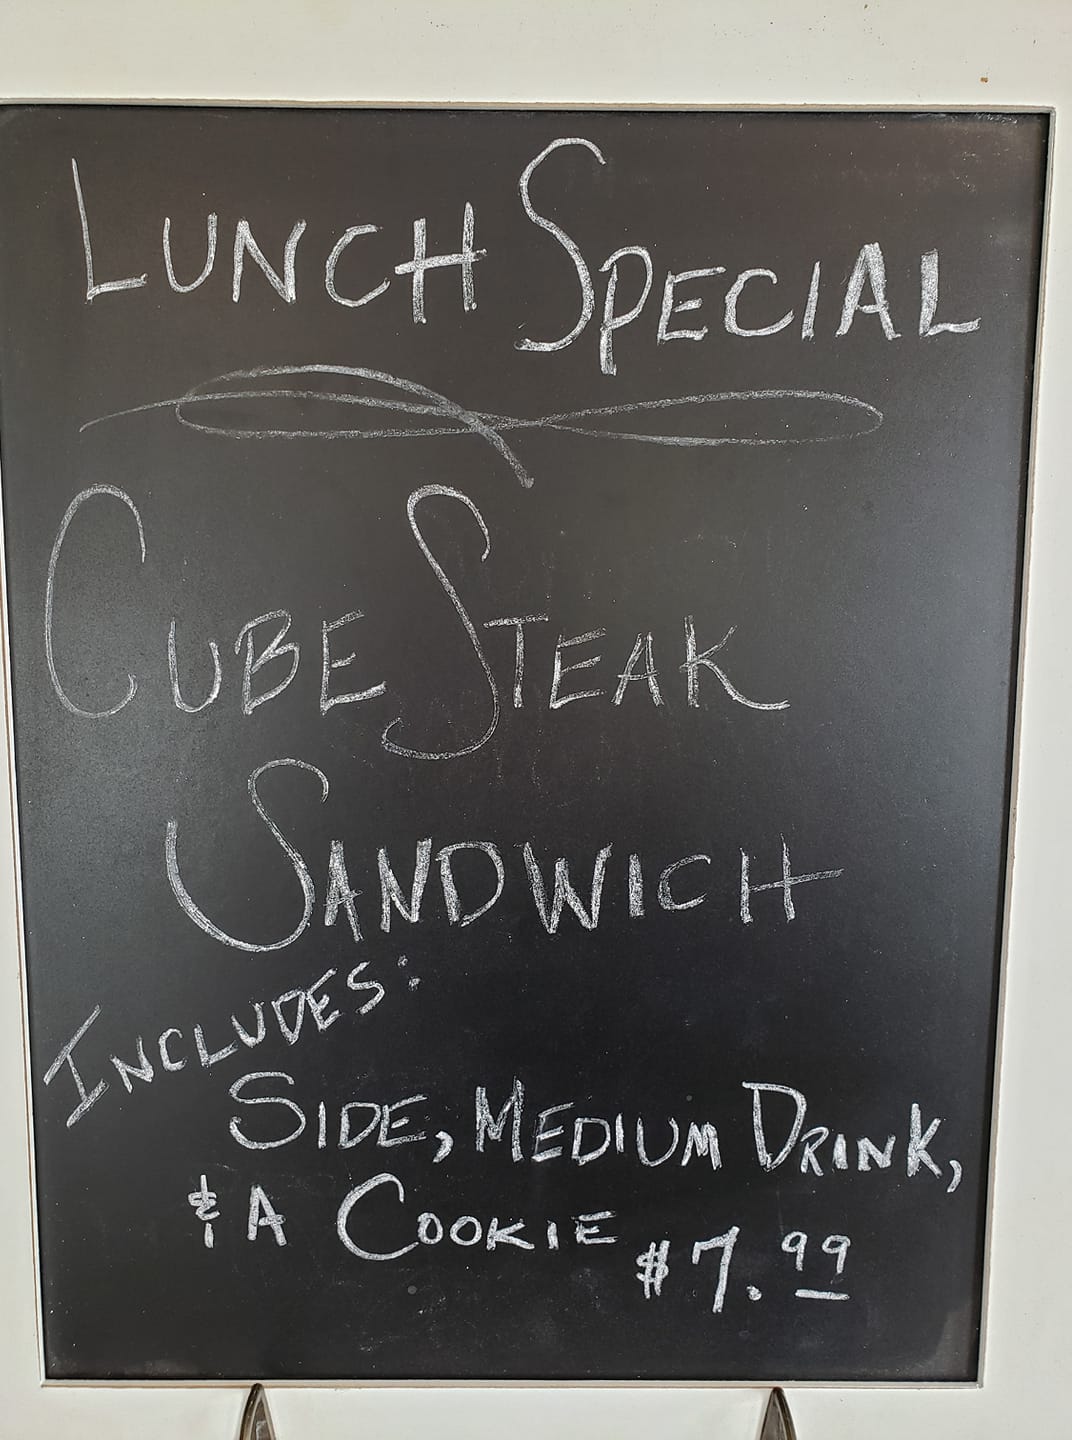 LUNCH SPECIAL
CUBE STEAK
SANDWICH
INCLUDES:
SIDE, MEDIUM DRINK,
& A COOKIE $7.99